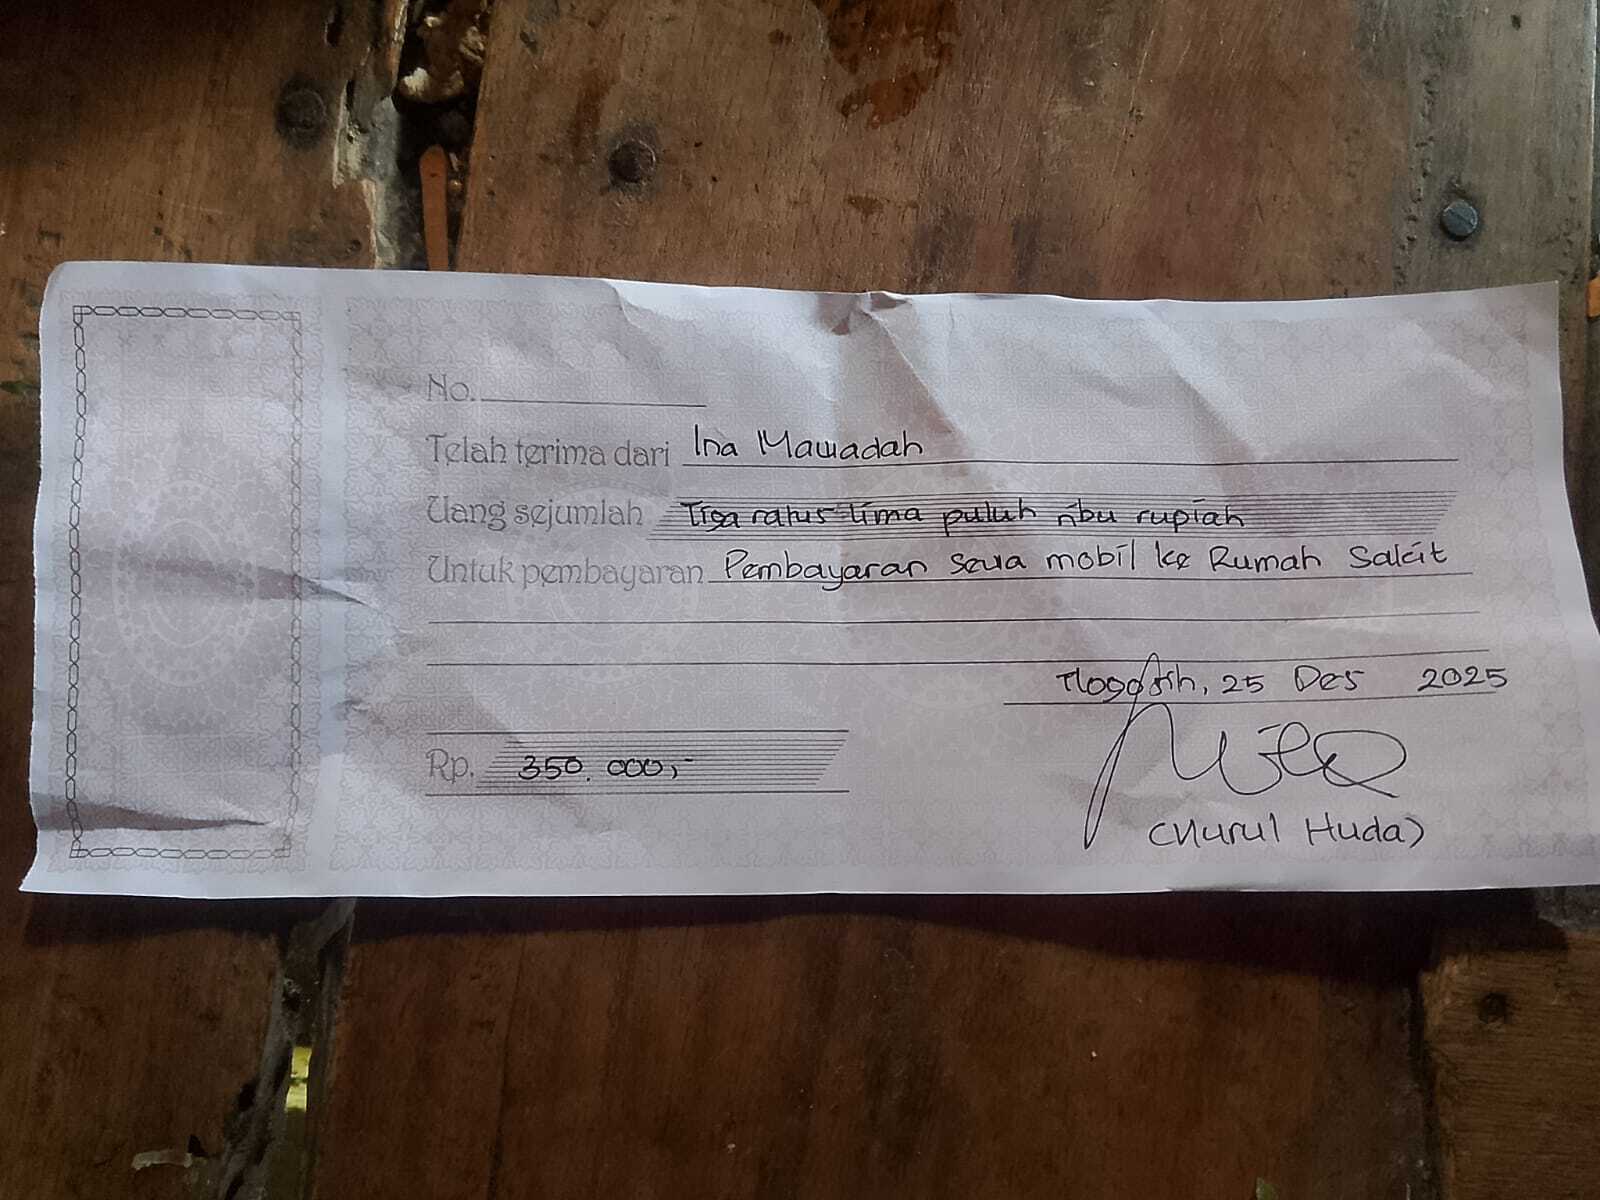 No.
Telah terima dari Ina Mawadah
Uang sejumlah Tiga ratus lima puluh ribu rupiah
Untuk pembayaran Pembayaran sewa mobil ke Rumah Sakit
Tlogorih, 25 Des 2025
Rp. 350.000,-
(Nurul Huda)